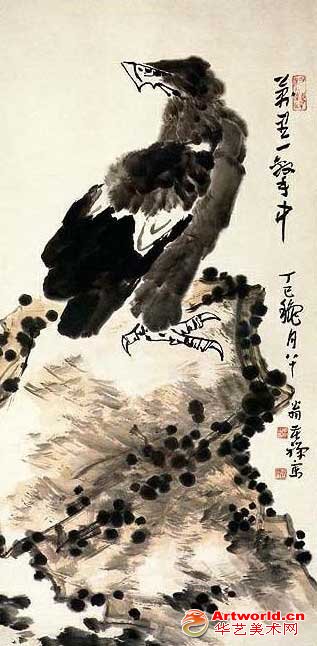 萬里一擊中
丁巳穐月八十翁苦禅寫
Artworld.cn
华艺美术网